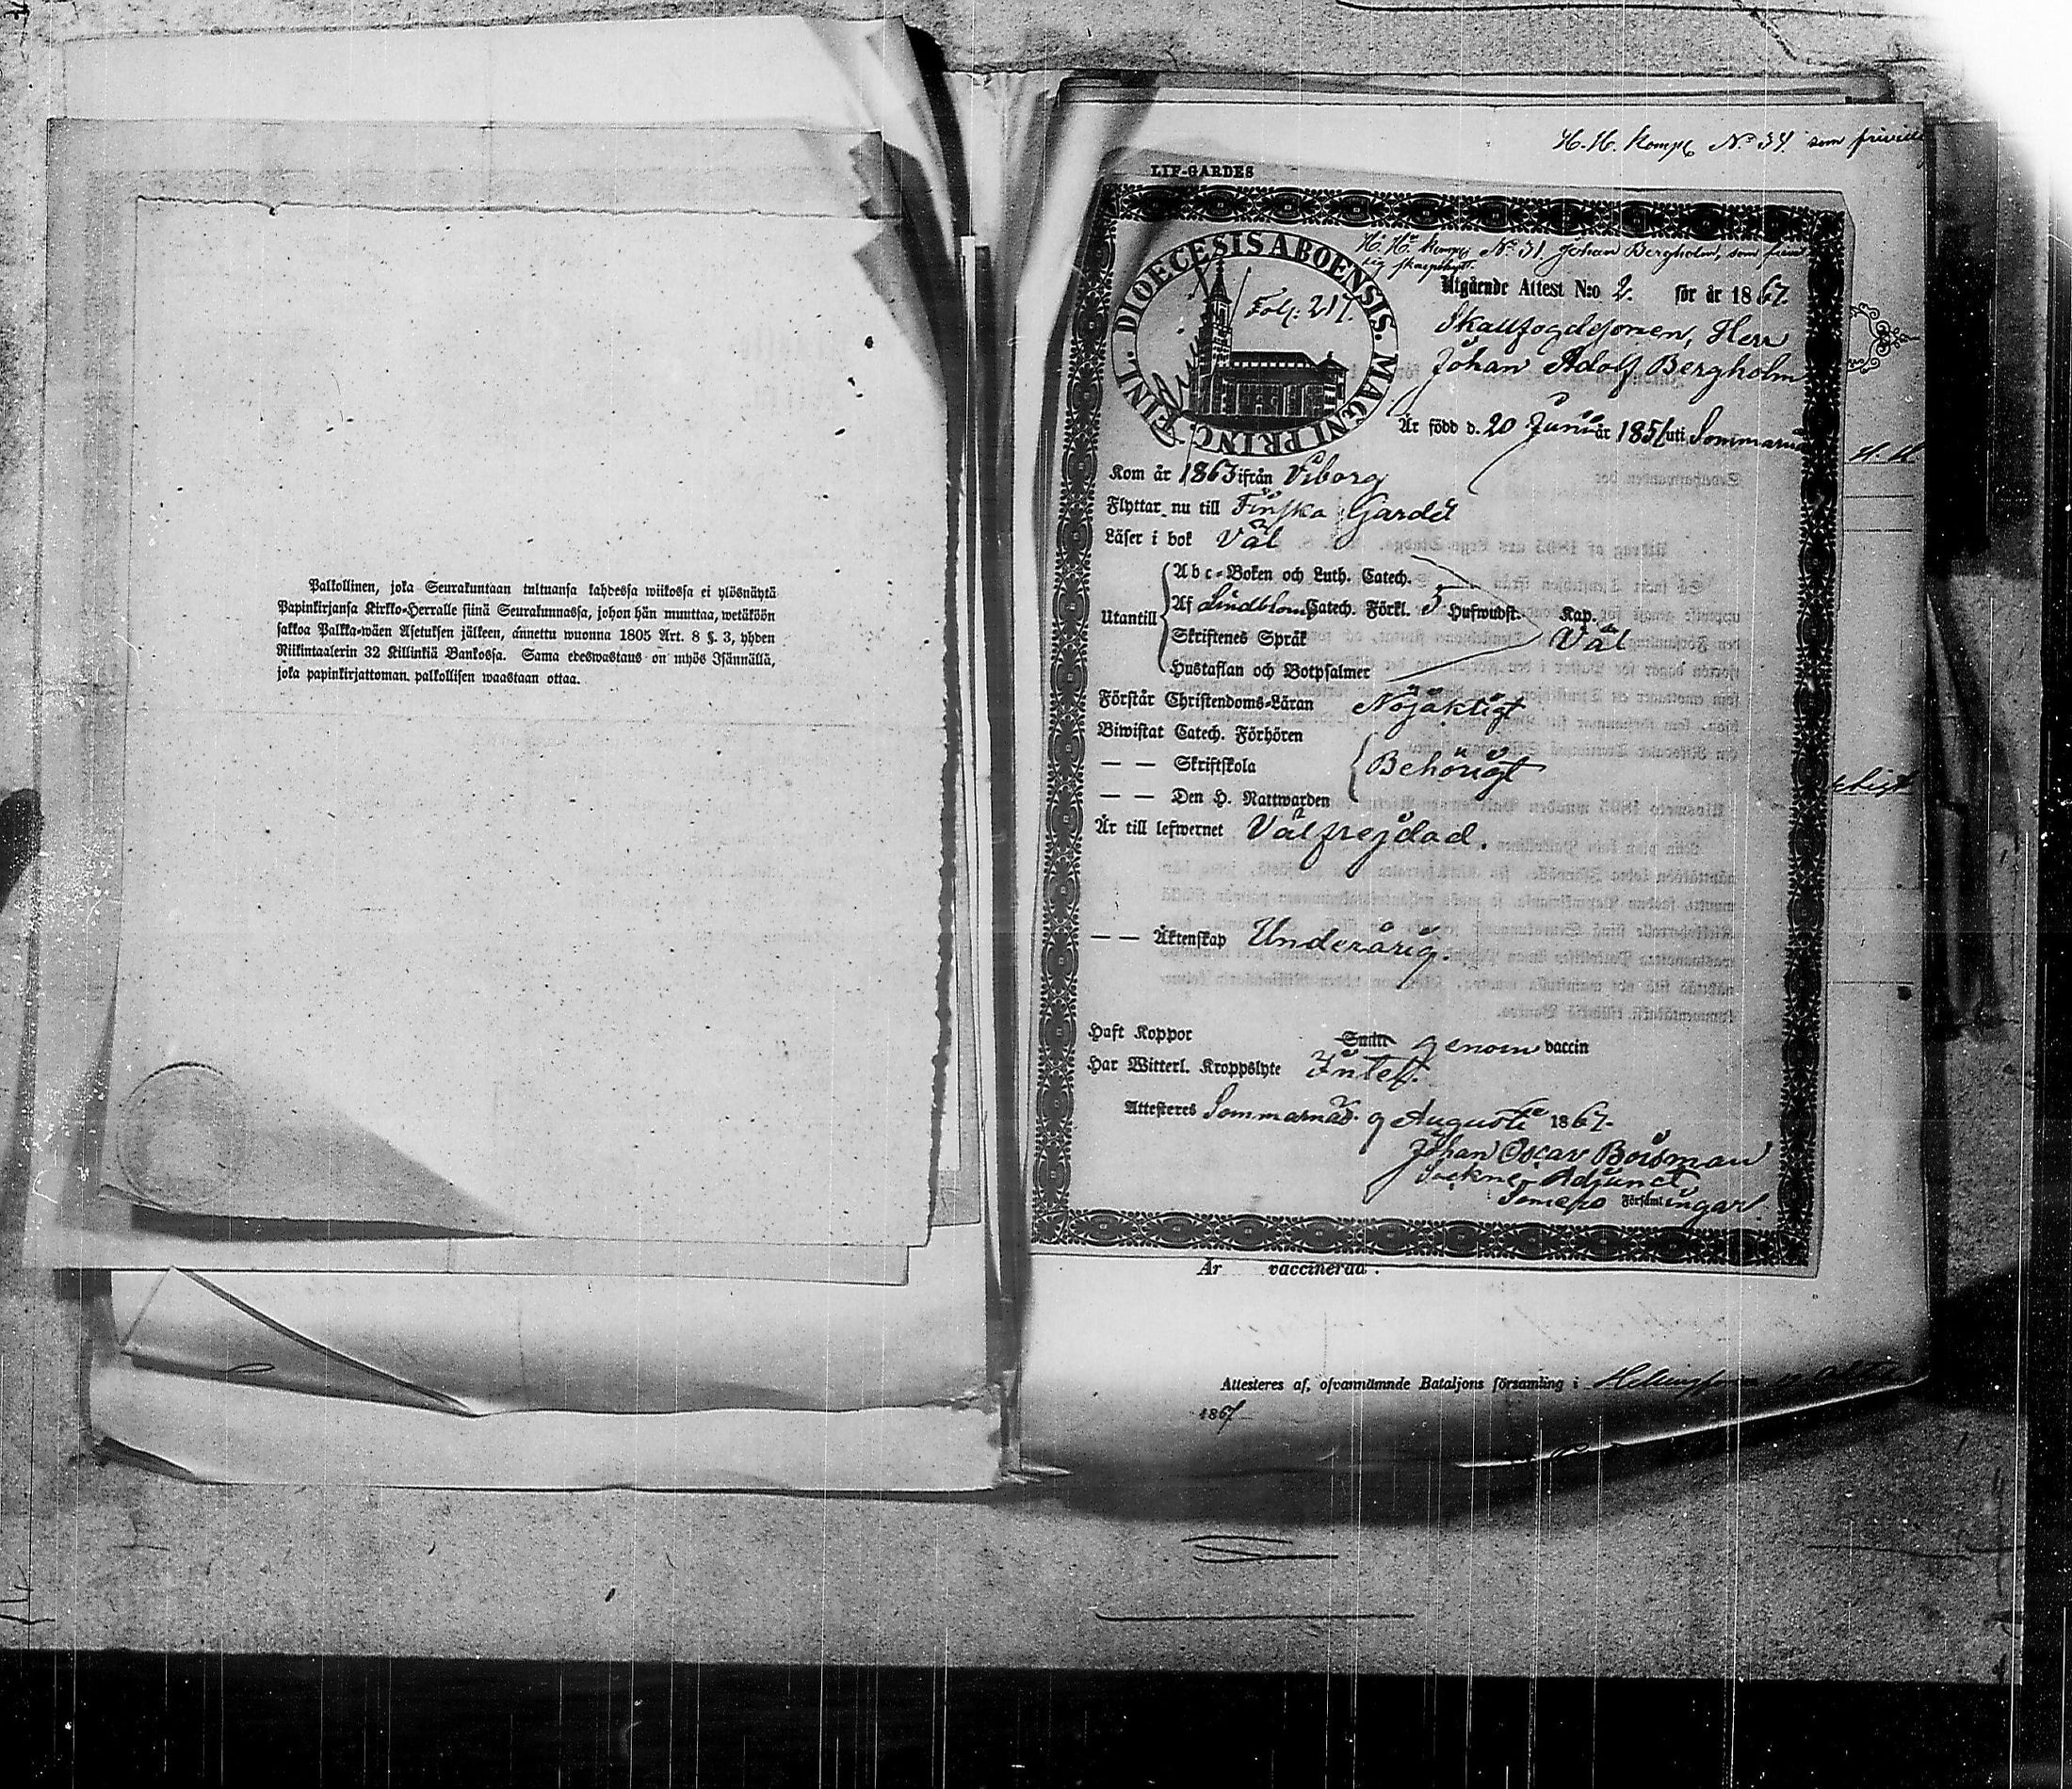 Palkollinen, joka Seurakuntaan tultuansa kahdessa wiikossa ei ylösnäytä
Papinkirjansa Kirkko-Herralle siinä Seurakunnassa, johon hän muuttaa, wetäköön
sakkoa Palkka-wäen Asetuksen jälkeen, annettu wuonna 1805 Art. 8 §. 3, yhden
Riikintaalerin 32 Killinkiä Bankossa. Sama edeswastaus on myös Isännällä,
joka papinkirjattoman palkollisen waastaan ottaa.
H. H. Komp N:o 34 som
LIF-GARDES
H. H:s Komp N:o 31. Johan Bergholm, som
skarpskytt.
DIOECESIS ABOENSIS. MAGNI PRINC. FINL.
Fol. 217.
Utgående Attest N:o 2. för år 1867.
Skallfogdesonen, Herr
Johan Adolf Bergholm
Är född d. 20 Junii år 1851 uti Sommarnäs
Kom år 1863 ifrån Viborg
Flyttar nu till Finska Gardet
Läser i bok Väl
Utantill
Abc-Boken och Luth. Catech.
Af Lindbloms Catech. Förkl. 5 Hufwudst. Kap.
Skriftenes Språk
Väl
Hustaflan och Botpsalmer
Förstår Christendoms-Läran Nöjaktigt
Biwistat Catech. Förhören
— — Skriftskola Behörigt
— — Den H. Nattwarden
Är till lefwernet Välfrejdad.
— — Äktenskap Underårig.
Haft Koppor genom vaccin
Har Witterl. Kroppslyte Intet.
Attesteres Sommarnäs 9 Augusti 1867.
Johan Oscar Boisman
Sockne-Adjunct
Somero Församlingar.
Är vaccinerad.
Attesteres af, ofvannämnde Bataljons församling i Helsingfors
1867